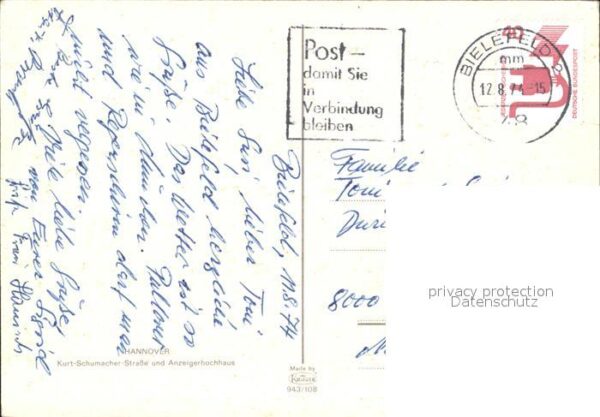 Post –
damit Sie
in
Verbindung
bleiben
BIELEFELD 2
mm
12.8.74-15
48
DEUTSCHE BUNDESPOST
Bielefeld, 11.8.74
Liebe Susi, lieber Toni
aus Bielefeld herzliche
Grüße. Das Wetter ist so
wie in München. Pullover
und Regenschirm darf man
nicht vergessen.
Viele liebe Grüße
von Eurer
Familie
Toni
8000
privacy protection
Datenschutz
HANNOVER
Kurt-Schumacher-Straße und Anzeigerhochhaus
Made by
943/108